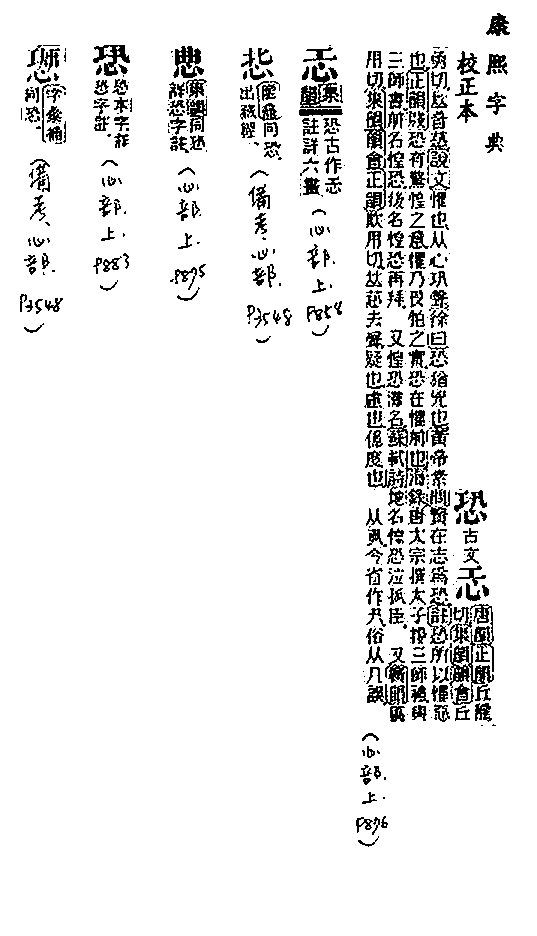 康熙字典
校正本
恐古文㤟
唐韻正韻丘隴
切集韻韻會丘
勇切𠀤音銎說文懼也从心巩聲徐曰恐猶兇也黃帝素問腎在志爲恐註恐所以懼惡
也正韻恐有驚惶之意懼乃畏怕之實恐在懼前也海錄唐太宗撰太子接三師禮與
三師書前名惶恐後名惶恐再拜 又惶恐灘名蘇軾詩地名惶恐泣孤臣 又韻
用切集韻韻會正韻欺用切𠀤去聲疑也慮也億度也 从今省作俗从几誤
(心部.上.P876)
集韻恐古作
註詳六畫
(心部.上.P858)
同恐
出
(備考.心部.P3548)
集韻同恐
詳恐字註
(心部.上.P875)
恐本字詳
恐字註
(心部.上.P883)
字彙補
同恐
(備考.心部.P3548)